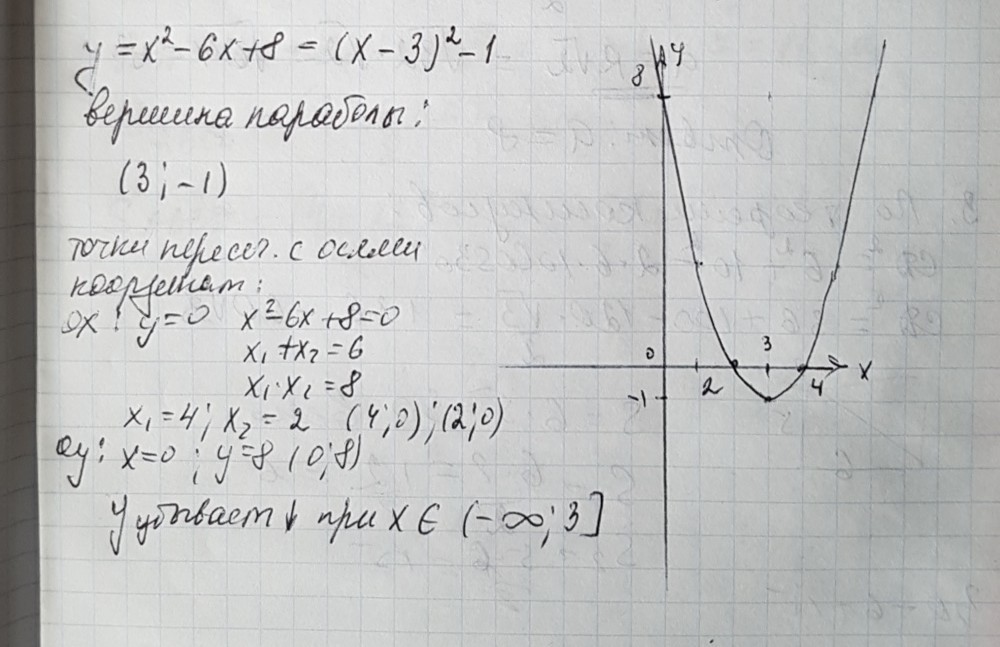 y = x² - 6x + 8 = (x - 3)² - 1
вершина параболы:
(3; -1)
точки пересеч. с осями
координат:
Ox: y=0 x²-6x+8=0
x₁ + x₂ = 6
x₁ · x₂ = 8
x₁ = 4; x₂ = 2 (4;0); (2;0)
Oy: x=0; y=8 (0;8)
y убывает ↓ при x ∈ (-∞; 3]
y
8
0
3
2
4
x
-1